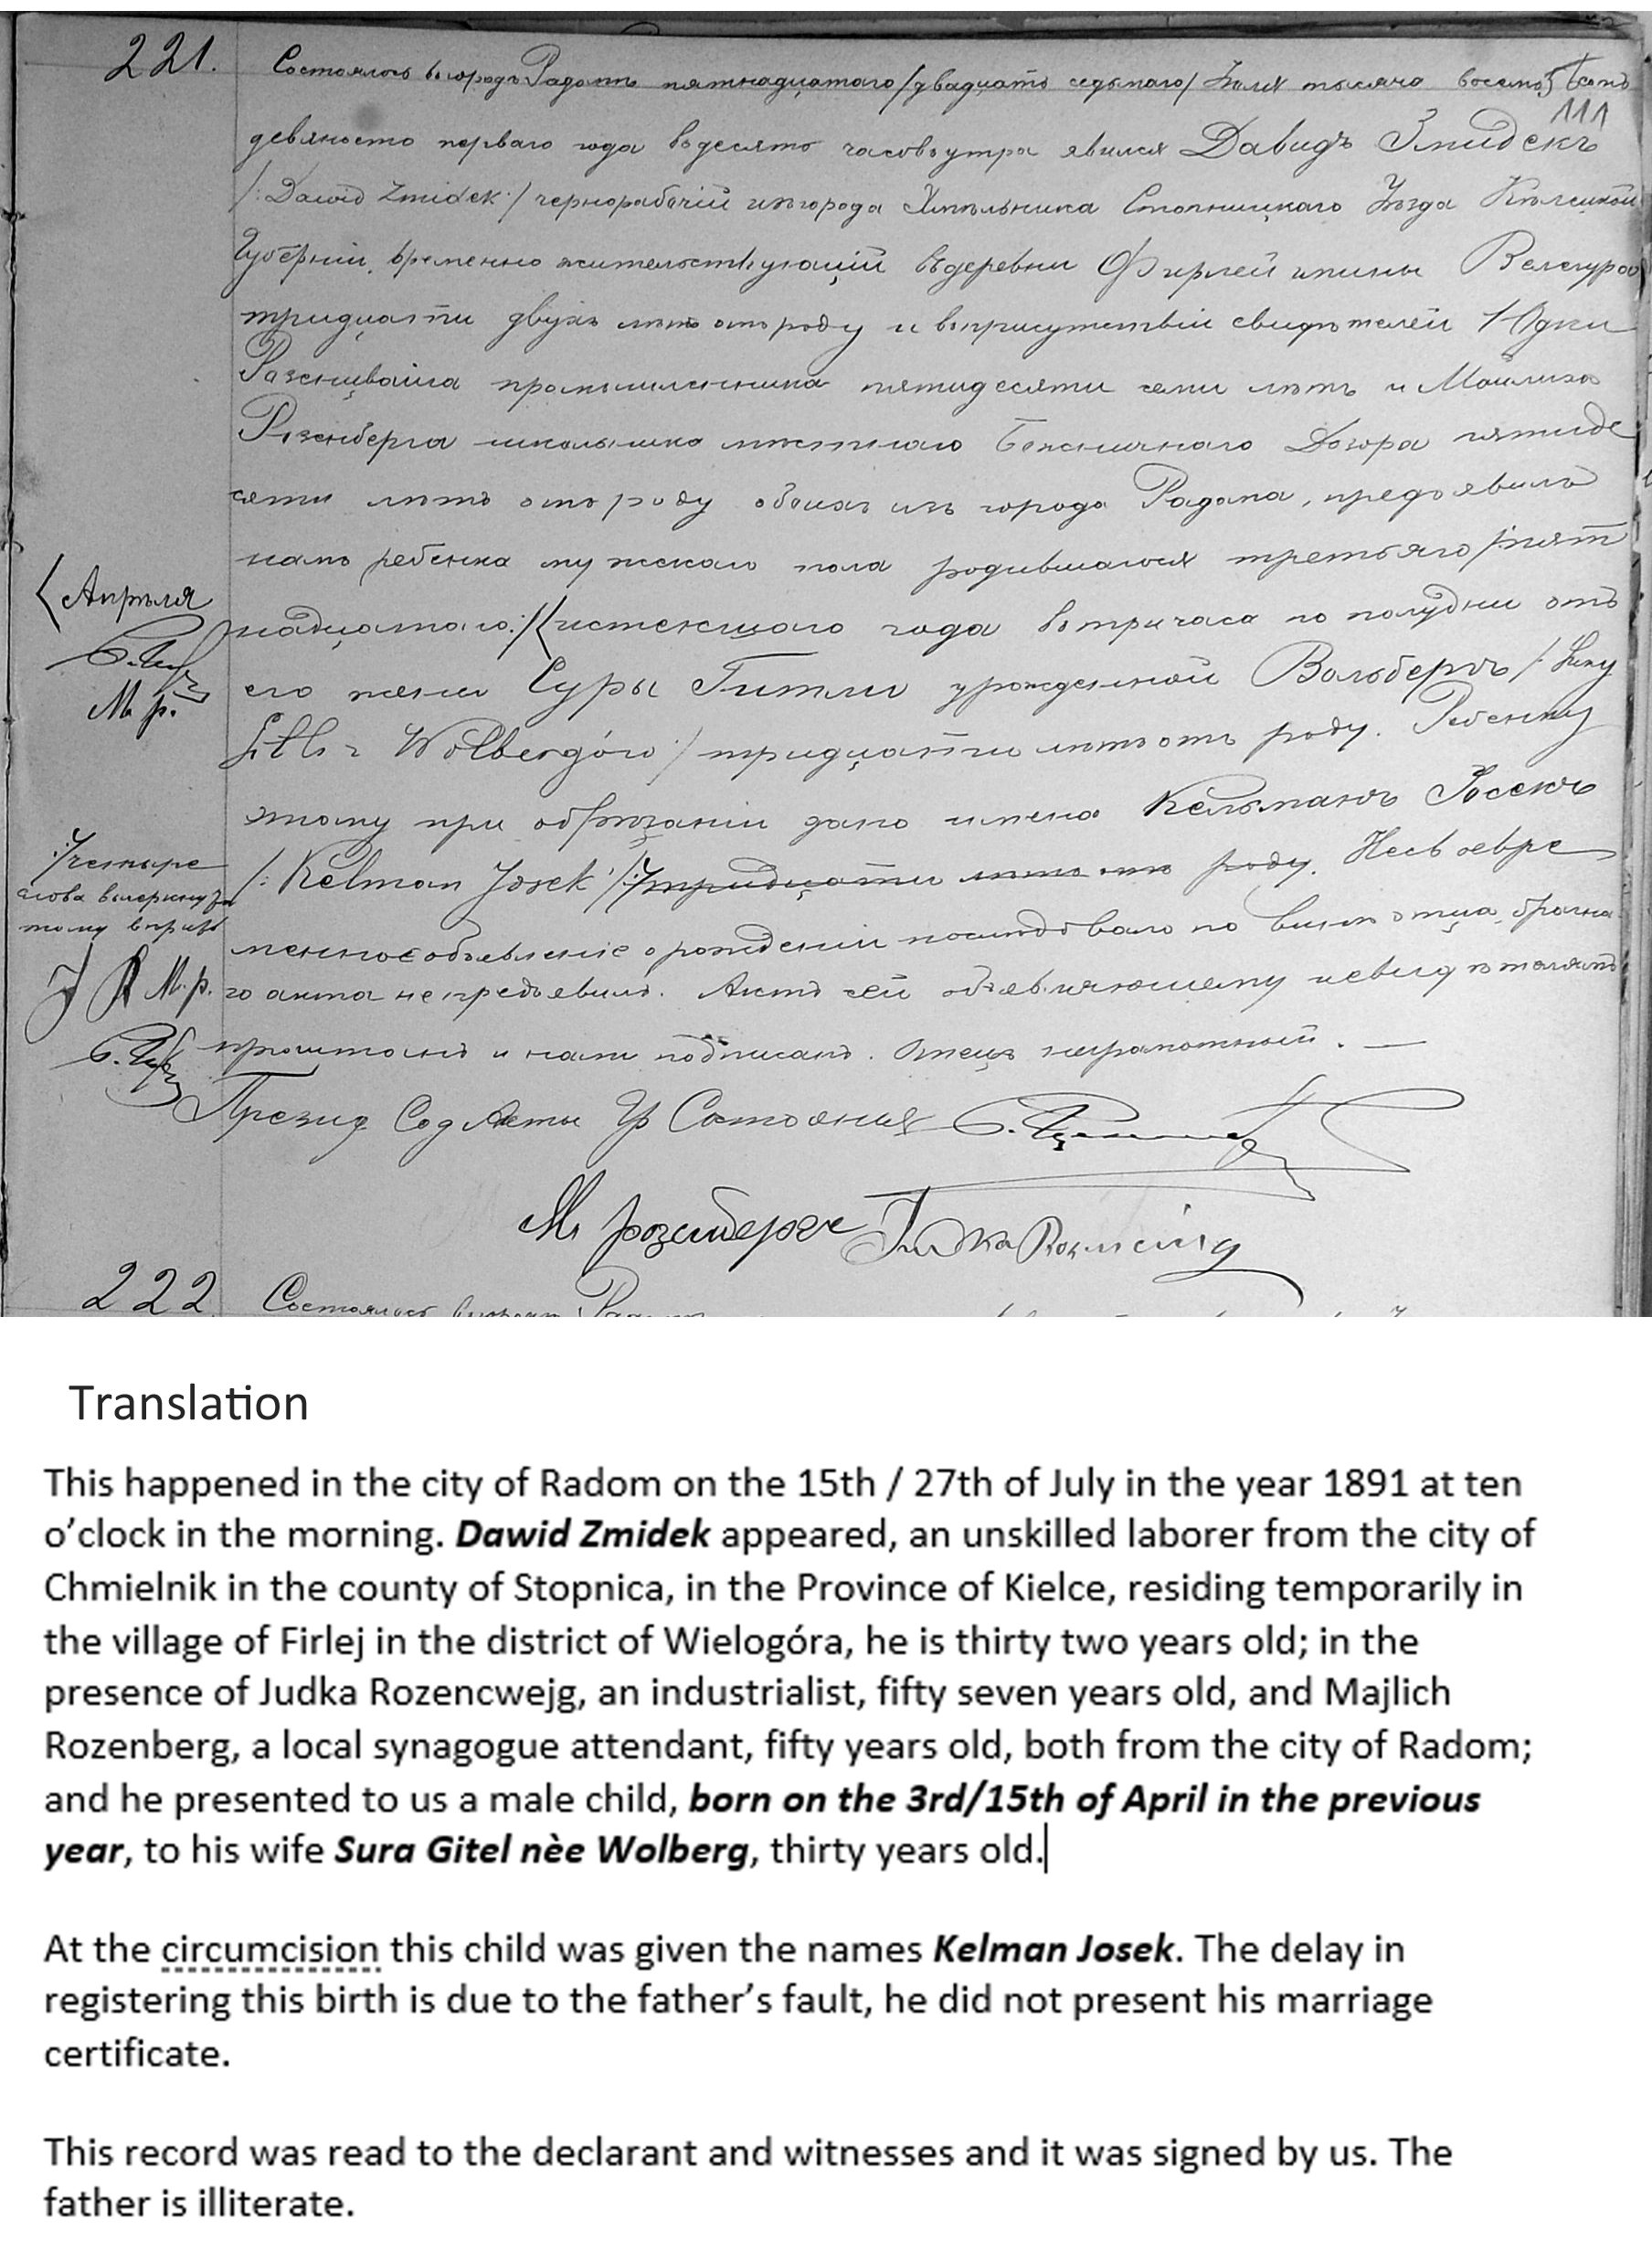 221.
Состоялось въ городѣ Радомѣ пятнадцатого / двадцать седьмаго / Іюля тысяча восемь сотъ
111
девяносто перваго года въ десять часовъ утра явился Давидъ Змидекъ
/: Dawid Zmidek :/ чернорабочій изъ города Хмѣльника Стопницкаго Уѣзда Кѣлецкой
Губерніи, временно жительствующій въ деревни Фирлей гмины Велегура
тридцати двухъ лѣтъ отъ роду и въ присутствіи свидѣтелей Юдки
Розенцвайга промышленника пятидесяти семи лѣтъ и Майлиха
Розенберга школьника мѣстнаго Божничнаго Дозора пятиде
сяти лѣтъ отъ роду обоихъ изъ города Радома, предъявилъ
намъ ребенка мужскаго пола родившагося третьяго / пят
надцатаго :/ истекшаго года въ три часа по полудни отъ
Апрѣля
М. р.
его жены Суры Гитли урожденной Вольбергъ /: Sury
Gitli z Wolbergów :/ тридцати лѣтъ отъ роду. Ребенку
этому при обрѣзаніи дано имена Кельманъ Іосекъ
/: Kelman Josek :/ тридцати лѣтъ отъ роду. Несвоевре
Четыре
слова вычеркнуто
тому вѣрно
М. р.
менное объявленіе о рожденіи послѣдовало по винѣ отца, брачна
го акта не предъявилъ. Актъ сей объявляющему и свидѣтелямъ
прочитанъ и нами подписанъ. Отецъ неграмотный. —
Презид Сод Акты Гр Состоянія
М розенберг Iudka Rozencwejg
222. Состоялось въ городѣ Радомѣ
Translation
This happened in the city of Radom on the 15th / 27th of July in the year 1891 at ten
o’clock in the morning. Dawid Zmidek appeared, an unskilled laborer from the city of
Chmielnik in the county of Stopnica, in the Province of Kielce, residing temporarily in
the village of Firlej in the district of Wielogóra, he is thirty two years old; in the
presence of Judka Rozencwejg, an industrialist, fifty seven years old, and Majlich
Rozenberg, a local synagogue attendant, fifty years old, both from the city of Radom;
and he presented to us a male child, born on the 3rd/15th of April in the previous
year, to his wife Sura Gitel nèe Wolberg, thirty years old.
At the circumcision this child was given the names Kelman Josek. The delay in
registering this birth is due to the father’s fault, he did not present his marriage
certificate.
This record was read to the declarant and witnesses and it was signed by us. The
father is illiterate.